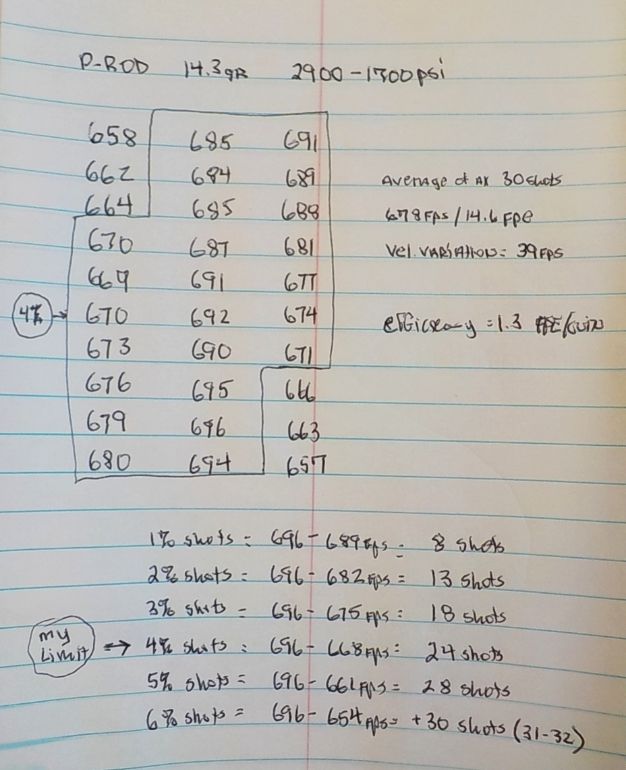 P-ROD 14.3gr 2900-1700psi
658 685 691
662 684 689
664 685 688
670 687 681
669 691 677
4% 670 692 674
673 690 671
676 695 666
679 696 663
680 694 657
Average of All 30 shots
678 FPS / 14.6 FPE
Vel. VARIATION = 39 FPS
efficiency = 1.3 FPE/cuin
1% shots = 696 - 689 fps = 8 shots
2% shots = 696 - 682 fps = 13 shots
3% shots = 696 - 675 fps = 18 shots
my Limit => 4% shots = 696 - 668 fps = 24 shots
5% shots = 696 - 661 fps = 28 shots
6% shots = 696 - 654 fps = +30 shots (31-32)